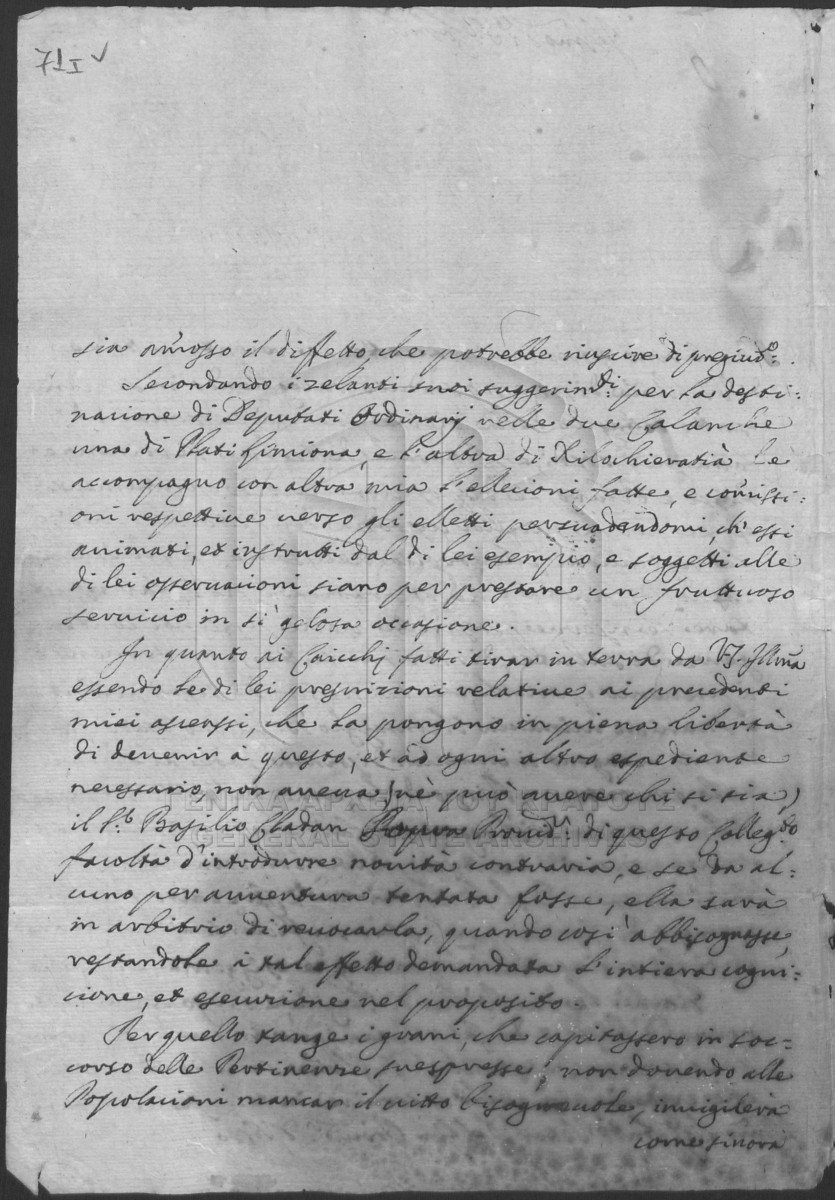 71 I v
sia am̃osso il diffetto, che potrebbe riuscire di pregiud:o
Secondando i zelanti suoi suggerim:ti per la desti:
nazione di Deputati Ordinarij nelle due Calanche
una di Plati Gimiona, e l'altra di Xilochieratià le
accompagno con altra mia l'ellezioni fatte, e com̃issi:
oni respettive verso gli elletti persuadendomi, ch'essi
animati, et instrutti dal di lei esempio, e soggetti alle
di lei osservazioni siano per prestare un fruttuoso
servicio in sì gelosa occasione.
In quanto ai Caicchj fatti tirar in terra da V.S. Illm̃a
essendo le di lei prescrizioni relative ai precedenti
miei asserssi, che la pongono in piena libertà
di devenir à questo, et ad ogni altro espediente
necessario, non aveva (nè può avere chi si sia)
il S.r Basilio Cladan Provid.r di questo Colleg:to
facoltà d'introdurre novità contraria, e se da al:
cuno per avventura tentata fosse, ella sarà
in arbitrio di revocarla, quando così abbisognasse,
restandole à tal effetto demandata l'intiera cogni:
zione, et esecuzione nel proposito.
Per quello tange i grani, che capitassero in soc=
corso delle Pertinenze suespresse, non dovendo alle
Popolazioni mancar il vitto bisognevole, invigilerà
come sinora
ΓΕΝΙΚΑ ΑΡΧΕΙΑ ΤΟΥ ΚΡΑΤΟΥΣ
GENERAL STATE ARCHIVES